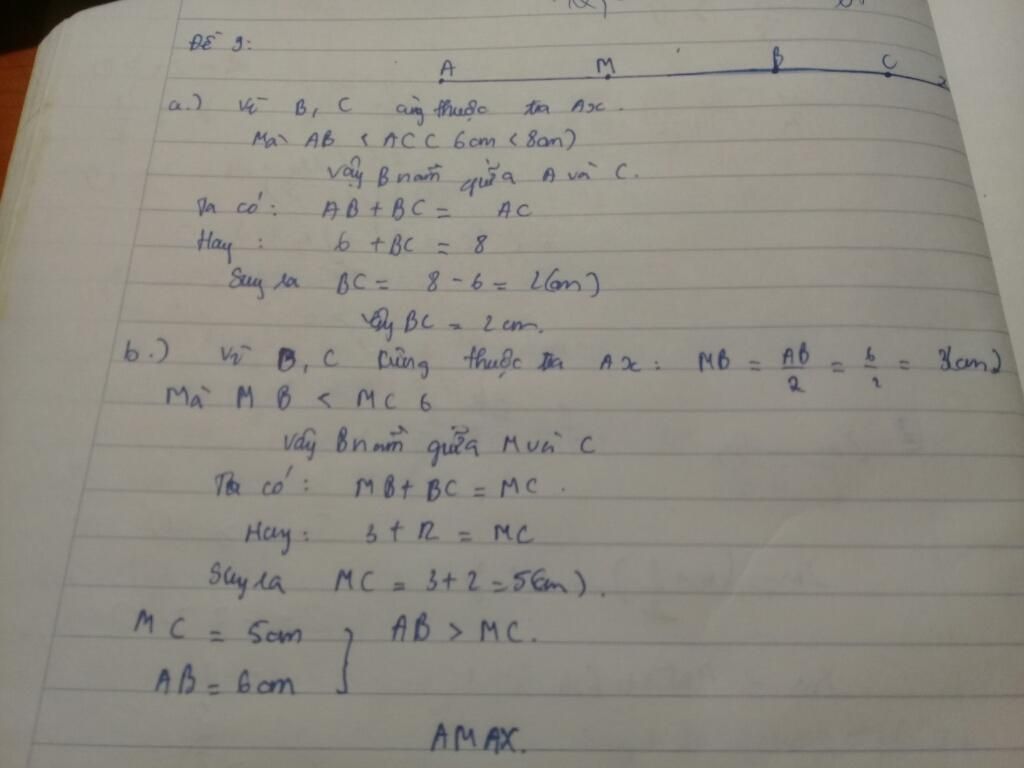 Đề 9:
A M B C x
a.) Vì B, C cùng thuộc tia Ax.
Mà AB < AC ( 6cm < 8cm)
Vậy B nằm giữa A và C.
Ta có: AB + BC = AC
Hay : 6 + BC = 8
Suy ra BC = 8 - 6 = 2(cm)
Vậy BC = 2cm.
b.) Vì B, C cùng thuộc tia Ax : MB = AB/2 = 6/2 = 3(cm)
Mà MB < MC
Vậy B nằm giữa M và C
Ta có: MB + BC = MC.
Hay: 3 + 2 = MC
Suy ra MC = 3 + 2 = 5(cm).
MC = 5cm } AB > MC.
AB = 6cm
AMAX.